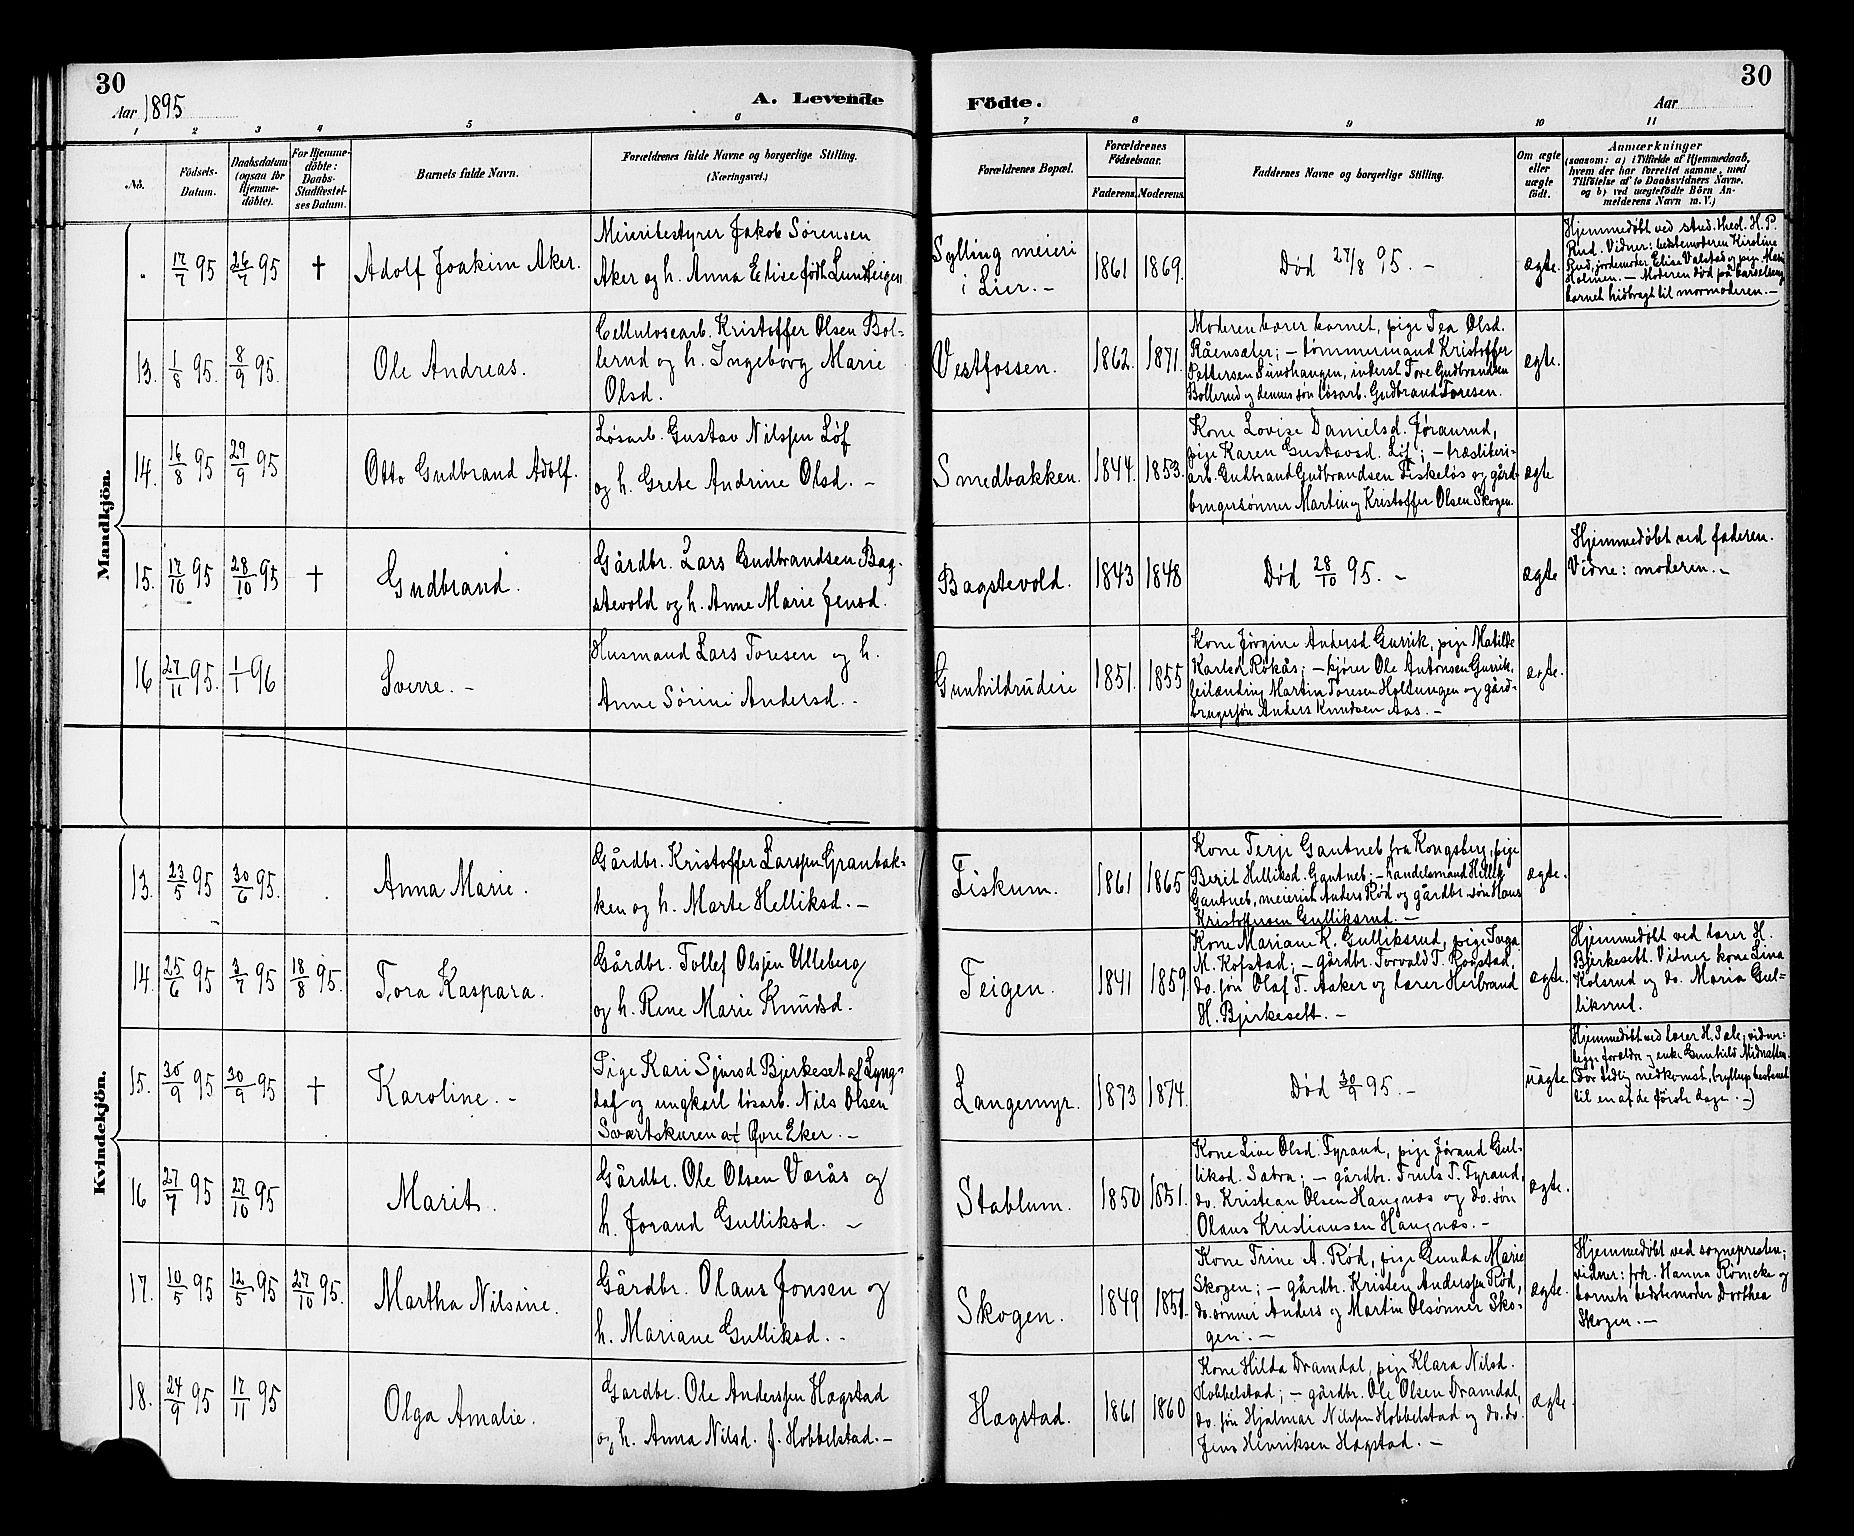 30
Aar 1895
A. Levende
Födte.
Aar
30
1 2 3 4 5 6 7 8 9 10 11
No.
Födsels-
Datum.
Daabsdatum
(ogsaa for
Hjemme-
döbte).
For Hjemme-
döbte:
Daabs-
Stadfæstel-
ses Datum.
Barnets fulde Navn.
Forældrenes fulde Navne og borgerlige Stilling.
(Næringsvei.)
Forældrenes Bopæl.
Forældrenes
Födselsaar.
Faderens. Moderens.
Faddernes Navne og borgerlige Stilling.
Om ægte
eller
uægte
födt.
Anmærkninger
(saasom: a) i Tilfælde af Hjemmedaab,
hvem der har forrettet samme, med
Tilföielse af to Daabsvidners Navne,
og b) ved uægtefödte Börn An-
melderens Navn m. V.)
Mandkjön.
17/7 95
26/7 95
†
Adolf Joakim Aker.
Meieribestyrer Jakob Sörensen
Aker og h. Anna Elise föth Lundteigen
Sylling meieri
i Lier. –
1861 1869.
Död 27/8 95. –
ægte.
Hjemmedöbt ved stud. theol. H. P.
Rud. Vidner: bestemoderen Kirstine
Rud, jordemoder Elise Valstad og pige Mari
Holmen. – Moderen död på barselseng
barnet hidbragt til mormoderen. –
13.
1/8 95.
8/9 95.
Ole Andreas.
Cellulosearb. Kristoffer Olsen Bol-
lerud og h. Ingeborg Marie
Olsd.
Vestfossen.
1862. 1871.
Moderen bærer barnet, pige Tea Olsd.
Råensæter; – tømmermand Kristoffer
Pettersen Sundhaugen, inderst Tore Gudbrandsen
Bollerud og dennes sön lösarb. Gudbrand Toresen.
ægte.
14.
16/8 95
29/9 95
Otto Gudbrand Adolf.
Løsarb. Gustav Nilssen Løf
og h. Grete Andrine Olsd. –
Smedbakken.
1844. 1853.
Kone Lovise Danielsd. Jøranrud,
pige Karen Gustavsd. Löf; – træsliberi-
arb. Gudbrand Gudbrandsen Fiskeløs og gård-
brugersønner Martin og Kristoffer Olsen Skogen.
ægte
15.
17/10 95
28/10 95
†
Gudbrand.
Gårdbr. Lars Gudbrandsen Bag-
stevold og h. Anne Marie Jensd.
Bagstevold.
1843 1848
Död 28/10 95. –
ægte
Hjemmedöbt ved faderen.
Vidne: moderen. –
16
27/11 95.
1/1 96
Sverre. –
Husmand Lars Toresen og h.
Anne Sørine Andersd. –
Gunhildrudeie
1851. 1855
Kone Jørgine Andersd Gurrik, pige Matilde
Karlsd. Røkås; – kjører Ole Antonsen Gurrik,
Martin Toresen Holtungen og gård-
brugersøn Anders Knudsen Aas. –
ægte.
Kvindekjön.
13.
23/5 95
30/6 95.
Anna Marie.
Gårdbr. Kristoffer Larssen Granbak-
ken og h. Marte Helliksd. –
Fiskum.
1861 1865
Kone Terji Gautneb fra Kongsberg, pige
Berit Helliksd. Gautneb; – handelsmand Hellik
Gautneb, meierist Anders Rød og gårdbr. søn Hans
Kristoffersen Gulliksrud. –
ægte.
14.
25/6 95
3/7 95
18/8 95.
Tora Kaspara.
Gårdbr. Tollef Olssen Ulleberg
og h. Rene Marie Knudsd.
Teigen.
1841 1859
Kone Mariane K. Gulliksrud, pige Inga
M. Kofstad; – gårdbr. Torvald T. Rogstad,
do. søn Olaf T. Aaker og lærer Herbrand
H. Bjerkesett. –
ægte.
Hjemmedöbt ved lærer H.
Bjerkesett. Vidner kone Lina
Kolsrud og do. Maria Gul-
liksrud.
15.
30/9 95
30/9 95
†
Karoline. –
Pige Kari Sjursd Bjerkeset af Lyng-
dal og ungkarl løsarb. Nils Olsen
Svartskuren af Øvre Eker. –
Langemyr.
1873 1874.
Död 30/9 95. –
uægte.
Hjemmedöbt ved lærer H. vidner:
begge forældre og enke Gunhild Midnatten.
(For tidlig nedkomst, bryllup bestemt
til en af de første dage. –)
16
27/7 95
27/10 95
Marit.
Gårdbr. Ole Olsen Værås og
h. Jorand Gulliksd. –
Stablum.
1850 1851.
Kone Live Olsd. Fyrand, pige Jørand Gul-
liksd. Satra; – gårdbr. Truls T. Fyrand,
do. Kristean Olsen Haugnæs og do. søn
Olaus Kristiansen Haugnæs. –
ægte.
17.
10/5 95
12/5 95
27/10 95.
Martha Nilsine.
Gårdbr. Olaus Jonsen og
h. Mariane Gulliksd. –
Skogen.
1849 1851.
Kone Trine A. Rød, pige Gunda Marie
Skogen; – gårdbr. Kristen Anderssen Rød,
do. sønner Anders og Martin Olsønner Sko-
gen. –
ægte.
Hjemmedöbt ved sognepresten;
vidner: frk. Hanna Römcke og
barnets bedstemoder Dorthea
Skogen. –
18.
24/9 95
17/11 95
Olga Amalie.
Gårdbr. Ole Anderssen Hagstad
og h. Anna Nilsd. f. Hobbelstad. –
Hagstad.
1861 1860
Kone Hilda Dramdal, pige Klara Nilsd.
Hobbelstad; – gårdbr. Ole Olsen Dramdal,
do. søn Hjalmar Nilssen Hobbelstad og do. do.
Jens Henriksen Hagstad. –
ægte.